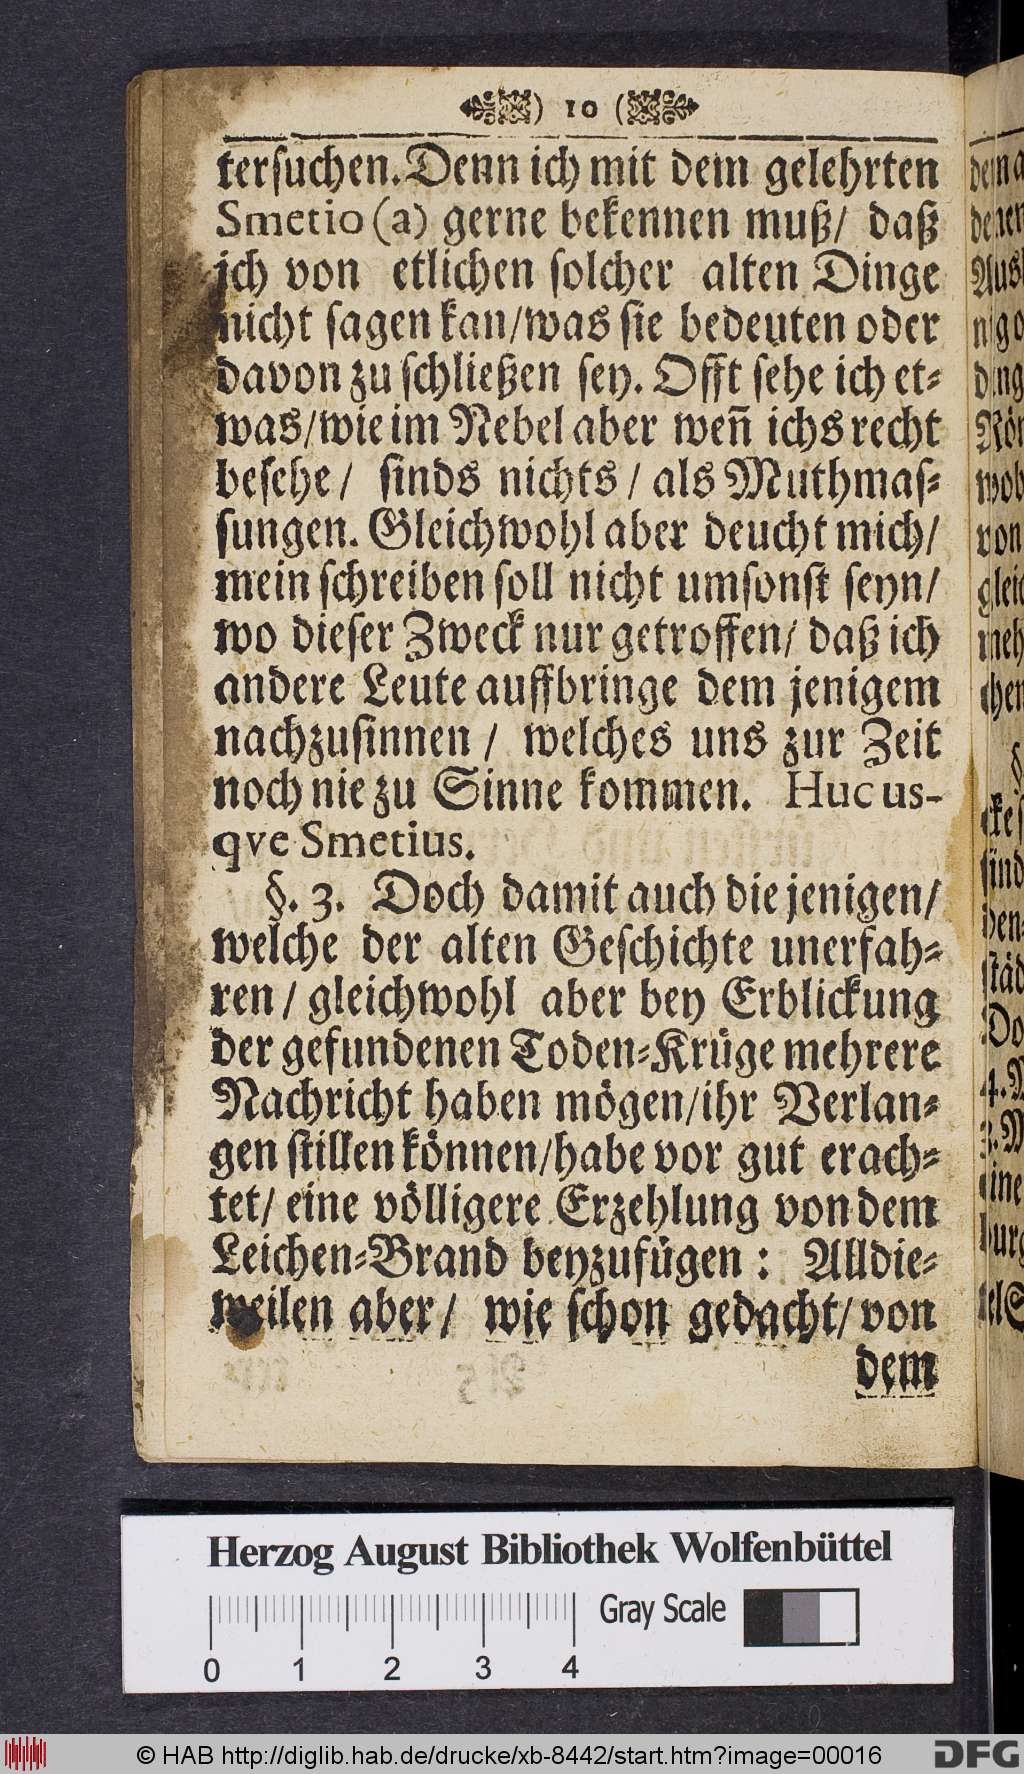 ) 10 (
terſuchen. Denn ich mit dem gelehrten
Smetio (a) gerne bekennen muß/ daß
ich von etlichen ſolcher alten Dinge
nicht ſagen kan/was ſie bedeuten oder
davon zu ſchließen ſey. Offt ſehe ich et⸗
was/wie im Nebel aber weñ ichs recht
beſehe/ ſinds nichts/ als Muthmaſ⸗
ſungen. Gleichwohl aber deucht mich/
mein ſchreiben ſoll nicht umſonſt ſeyn/
wo dieſer Zweck nur getroffen/ daß ich
andere Leute auffbringe dem jenigem
nachzuſinnen/ welches uns zur Zeit
noch nie zu Sinne kommen. Huc us-
qve Smetius.
§. 3. Doch damit auch die jenigen/
welche der alten Geſchichte unerfah⸗
ren/ gleichwohl aber bey Erblickung
der gefundenen Toden⸗Krüge mehrere
Nachricht haben mögen/ihr Verlan⸗
gen ſtillen können/habe vor gut erach⸗
tet/ eine völligere Erzehlung von dem
Leichen⸗Brand beyzufügen: Alldie⸗
weilen aber/ wie ſchon gedacht/ von
dem
Herzog August Bibliothek Wolfenbüttel
Gray Scale
0 1 2 3 4
© HAB http://diglib.hab.de/drucke/xb-8442/start.htm?image=00016
DFG